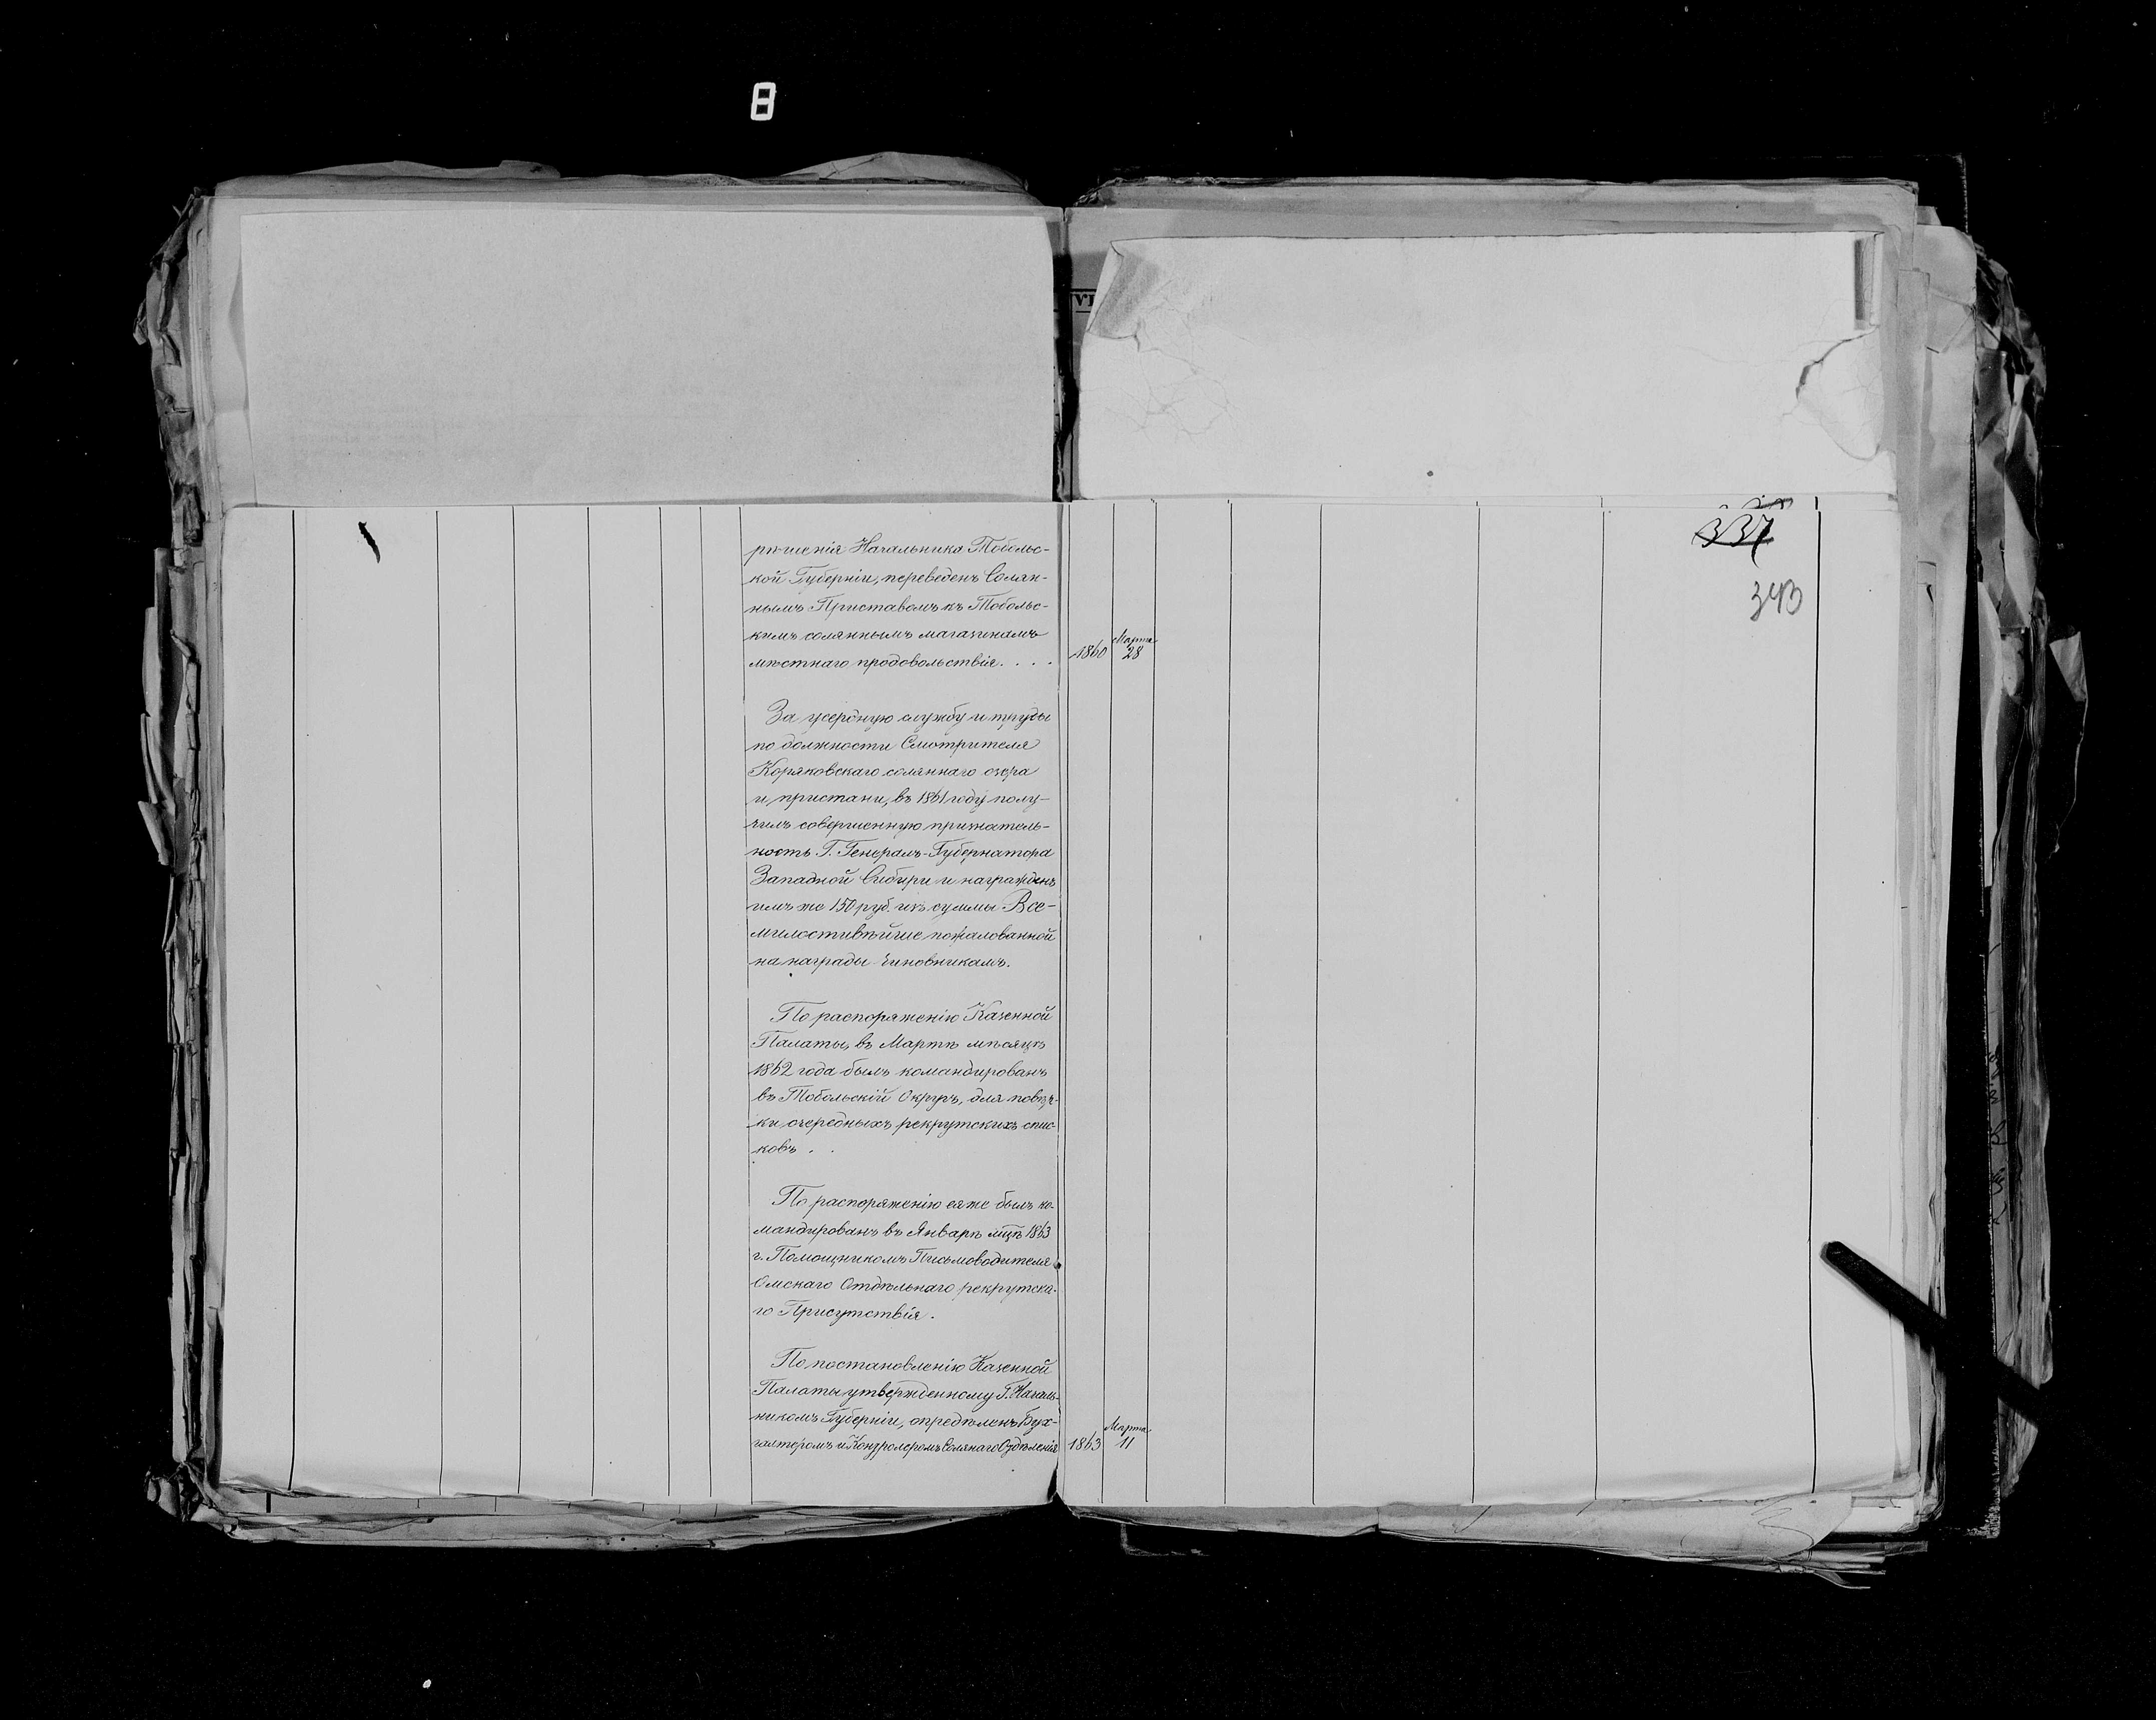 8
337
343
рѣшенія Начальника Тобольс-
кой Губерніи, переведенъ Солян-
нымъ Приставомъ къ Тобольс-
кимъ солянымъ магазинамъ
мѣстнаго продовольствія. . . . 1860 Марта 28
За усердную службу и труды
по должности Смотрителя
Коряковскаго солянаго озера
и пристани, въ 1861 году полу-
чилъ совершенную признатель-
ность Г. Генералъ-Губернатора
Западной Сибири и награжденъ
имъ же 150 руб. изъ суммы Все-
милостивѣйше пожалованной
на награды чиновникамъ.
По распоряженію Казенной
Палаты, въ Мартѣ мѣсяцѣ
1862 года былъ командированъ
въ Тобольскій Округъ, для повѣр-
ки очередныхъ рекрутскихъ спис-
ковъ . .
По распоряженію ея же былъ ко-
мандированъ въ Январѣ мцѣ 1863
г. Помощникомъ Письмоводителя
Омскаго Отдѣльнаго рекрутска-
го Присутствія.
По постановленію Казенной
Палаты утвержденному Г. Началь-
никомъ Губерніи, опредѣленъ Бух-
галтеромъ и Контролеромъ Солянаго Отдѣленія 1863 Марта 11